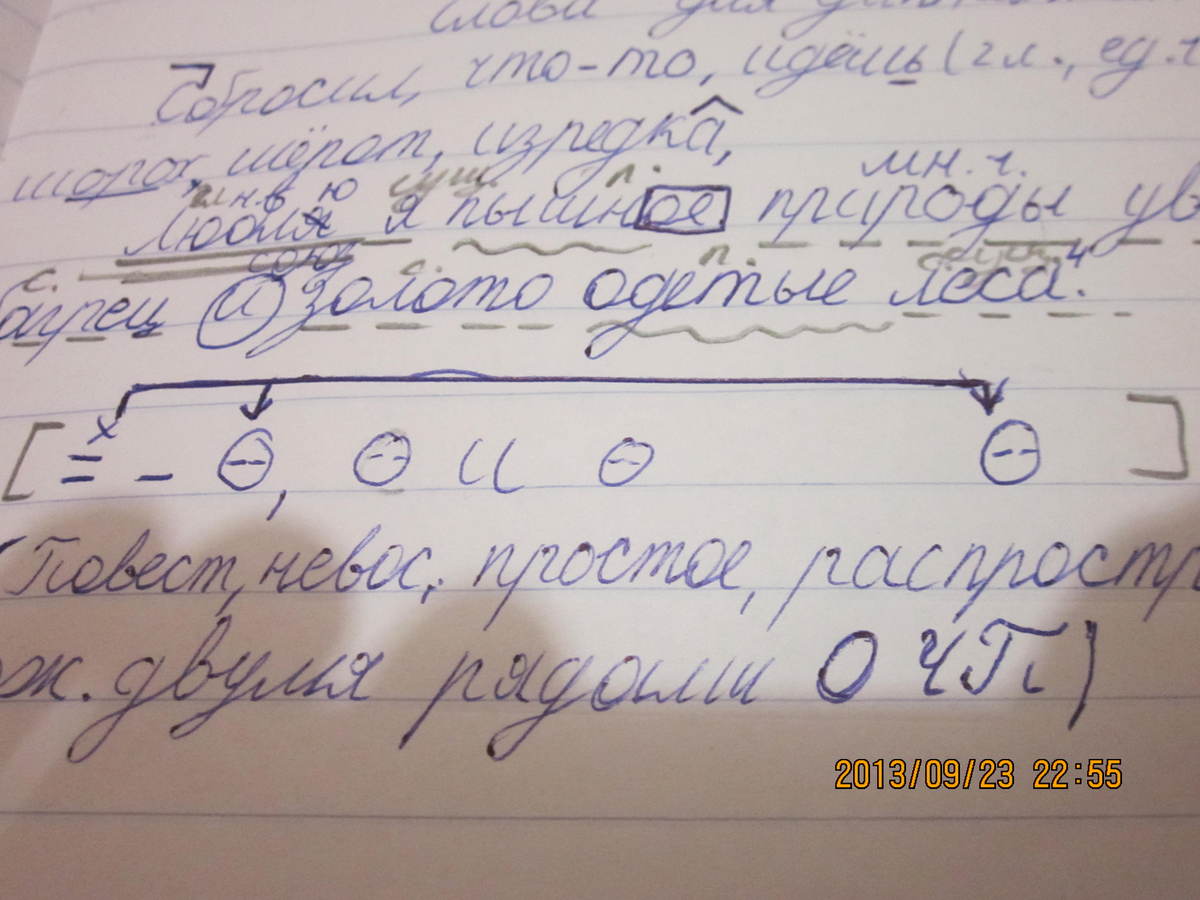 Слова для
Сбросил, что-то, идёшь (гл., ед.ч
шорох, шёпот, изредка,
инв ю сущ. п. мн. ч.
Люблю я пышное природы ув
с. союз с. п. сущ.
багрец и золото одетые леса.4
[ = - , и ]
(Повест, невос, простое, распростр
ож. двумя рядами ОЧП)
2013/09/23 22:55